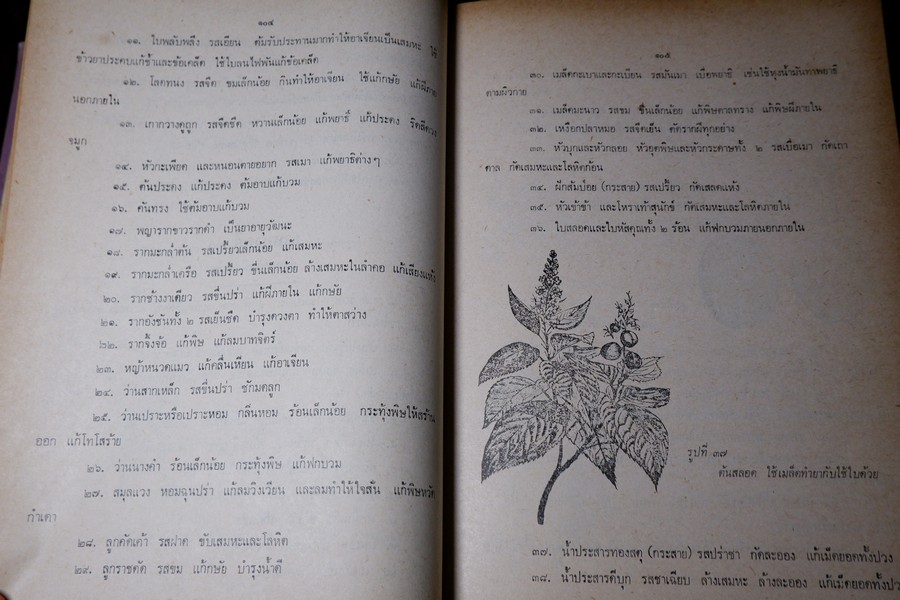 ๑๓๔
๑๑. ใบพลับพลึง รสเอียน ต้มรับประทานมากทำให้อาเจียนเป็นเสมหะ ใช้
ข้าวยาประคบแก้ช้ำและข้อเคล็ด ใช้ใบลนไฟพันแก้ข้อเคล็ด
๑๒. โลดทนง รสจืด ขมเล็กน้อย กินทำให้อาเจียน ใช้แก้กษัย แก้ฝีภาย
นอกภายใน
๑๓. เกากวางดูถูก รสจืดชืด หวานเล็กน้อย แก้พยาธิ์ แก้ประดง ริดสีดวง
จมูก
๑๔. หัวกะเพียด และหนอนตายอยาก รสเมา แก้พยาธิต่างๆ
๑๕. ต้นประดง แก้ประดง ต้มอาบแก้บวม
๑๖. ต้นทรง ใช้ต้มอาบแก้บวม
๑๗. พญารากขาวรากดำ เป็นยาอายุวัฒนะ
๑๘. รากมะกล่ำต้น รสเปรี้ยวเล็กน้อย แก้เสมหะ
๑๙. รากมะกล่ำเครือ รสเปรี้ยว ขื่นเล็กน้อย ล้างเสมหะในลำคอ แก้เสียงแห้ง
๒๐. รากช้างงาเดียว รสขื่นปร่า แก้ฝีภายใน แก้กษัย
๒๑. รากอังชันทั้ง ๒ รสเย็นชืด บำรุงดวงตา ทำให้ตาสว่าง
๒๒. รากจิงจ้อ แก้พิษ แก้ลมบาทจิตร์
๒๓. หญ้าหนวดแมว แก้คลื่นเหียน แก้อาเจียน
๒๔. ว่านสากเหล็ก รสขื่นปร่า ชักมดลูก
๒๕. ว่านเปราะหรือเปราะหอม กลิ่นหอม ร้อนเล็กน้อย กระทุ้งพิษให้สร้าน
ออก แก้โทโสร้าย
๒๖. ว่านนางคำ ร้อนเล็กน้อย กระทุ้งพิษ แก้ฟกบวม
๒๗. สมุลแวง หอมฉุนปร่า แก้ลมวิงเวียน และลมทำให้ใจสั่น แก้พิษหวัด
กำเดา
๒๘. ลูกคัดเค้า รสฝาด ขับเสมหะและโลหิต
๒๙. ลูกราชดัด รสขม แก้กษัย บำรุงน้ำดี
๑๓๕
๓๐. เมล็ดกะเบาและกะเบียน รสมันเมา เบื่อพยาธิ เช่นใช้หุงน้ำมันทาพยาธิ
ตามผิวกาย
๓๑. เมล็ดมะนาว รสขม ขื่นเล็กน้อย แก้พิษตาลทราง แก้พิษฝีภายใน
๓๒. เหงือกปลาหมอ รสจืดเย็น ตัดรากฝีทุกอย่าง
๓๓. หัวบุกและหัวกลอย หัวอุตพิษและหัวกระดาษทั้ง ๒ รสเบื่อเมา กัดเถา
ดาล กัดเสมหะและโลหิตก้อน
๓๔. ฝักส้มป่อย (กระสาย) รสเปรี้ยว กัดเสลดแห้ง
๓๕. หัวเข้าข้า และโหราเท้าสุนักข์ กัดเสมหะและโลหิตภายใน
๓๖. ใบสลอดและใบหัสคุณทั้ง ๒ ร้อน แก้ฟกบวมภายนอกภายใน
รูปที่ ๓๗
ต้นสลอด ใช้เมล็ดทำยากับใช้ใบด้วย
๓๗. น้ำประสารทองสตุ (กระสาย) รสปร่าซา กัดละออง แก้เม็ดยอดทั้งปวง
๓๘. น้ำประสารดีบุก รสซาเฉียบ ล้างเสมหะ ล้างละออง แก้เม็ดยอดทั้งปวง